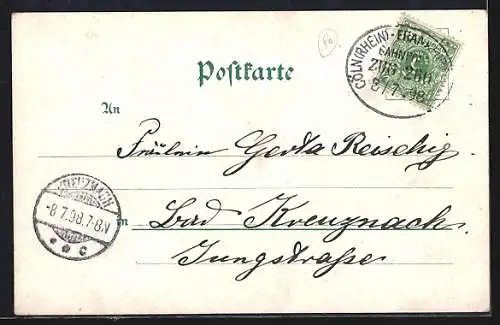 CÖLN (RHEIN) - FRANKF
BAHNPOST
ZUG 2
8/7 98
Postkarte
An
Fräulein Gerta Reischig.
in Bad Kreuznach
Jungstrasse
KREUZNACH
-8.7.98.7-8.V
* * C